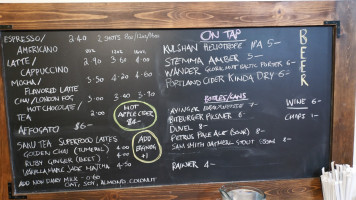 ESPRESSO/ 2.40 2 SHOTS
AMERICANO
LATTE/ 2.90 3.60 4.20
CAPPUCCINO
MOCHA/ 3.50 4.20 4.70
FLAVORED LATTE
CHAI/LONDON FOG
HOT CHOCOLATE/ 3.00 3.40 3.90
TEA 2.00
AFFOGATO $6—
HOT
APPLE CIDER
$4—
ADD
BOURBON
+1
SANU TEA SUPERFOOD LATTES
GOLDEN CHAI (TUMERIC) 4.00
RUBY GINGER (BEET) 4.00
VANILLA MAPLE MATCHA 4.50
ADD NON DAIRY MILK 0.60
OAT, SOY, ALMOND, COCONUT
ON TAP
KULSHAN HELIOTROPE IPA 5—
STEMMA AMBER 5—
WANDER BALTIC PORTER 6—
PORTLAND CIDER KINDA DRY 6—
BEER
BOTTLES/CANS
AYINGER 7—
BITBURGER PILSNER 6—
DUVEL 8—
PETRUS PALE ALE (SOUR) 8—
SAM SMITH OATMEAL STOUT 8—
RAINIER 4—
WINE 6—
CHIPS 1—